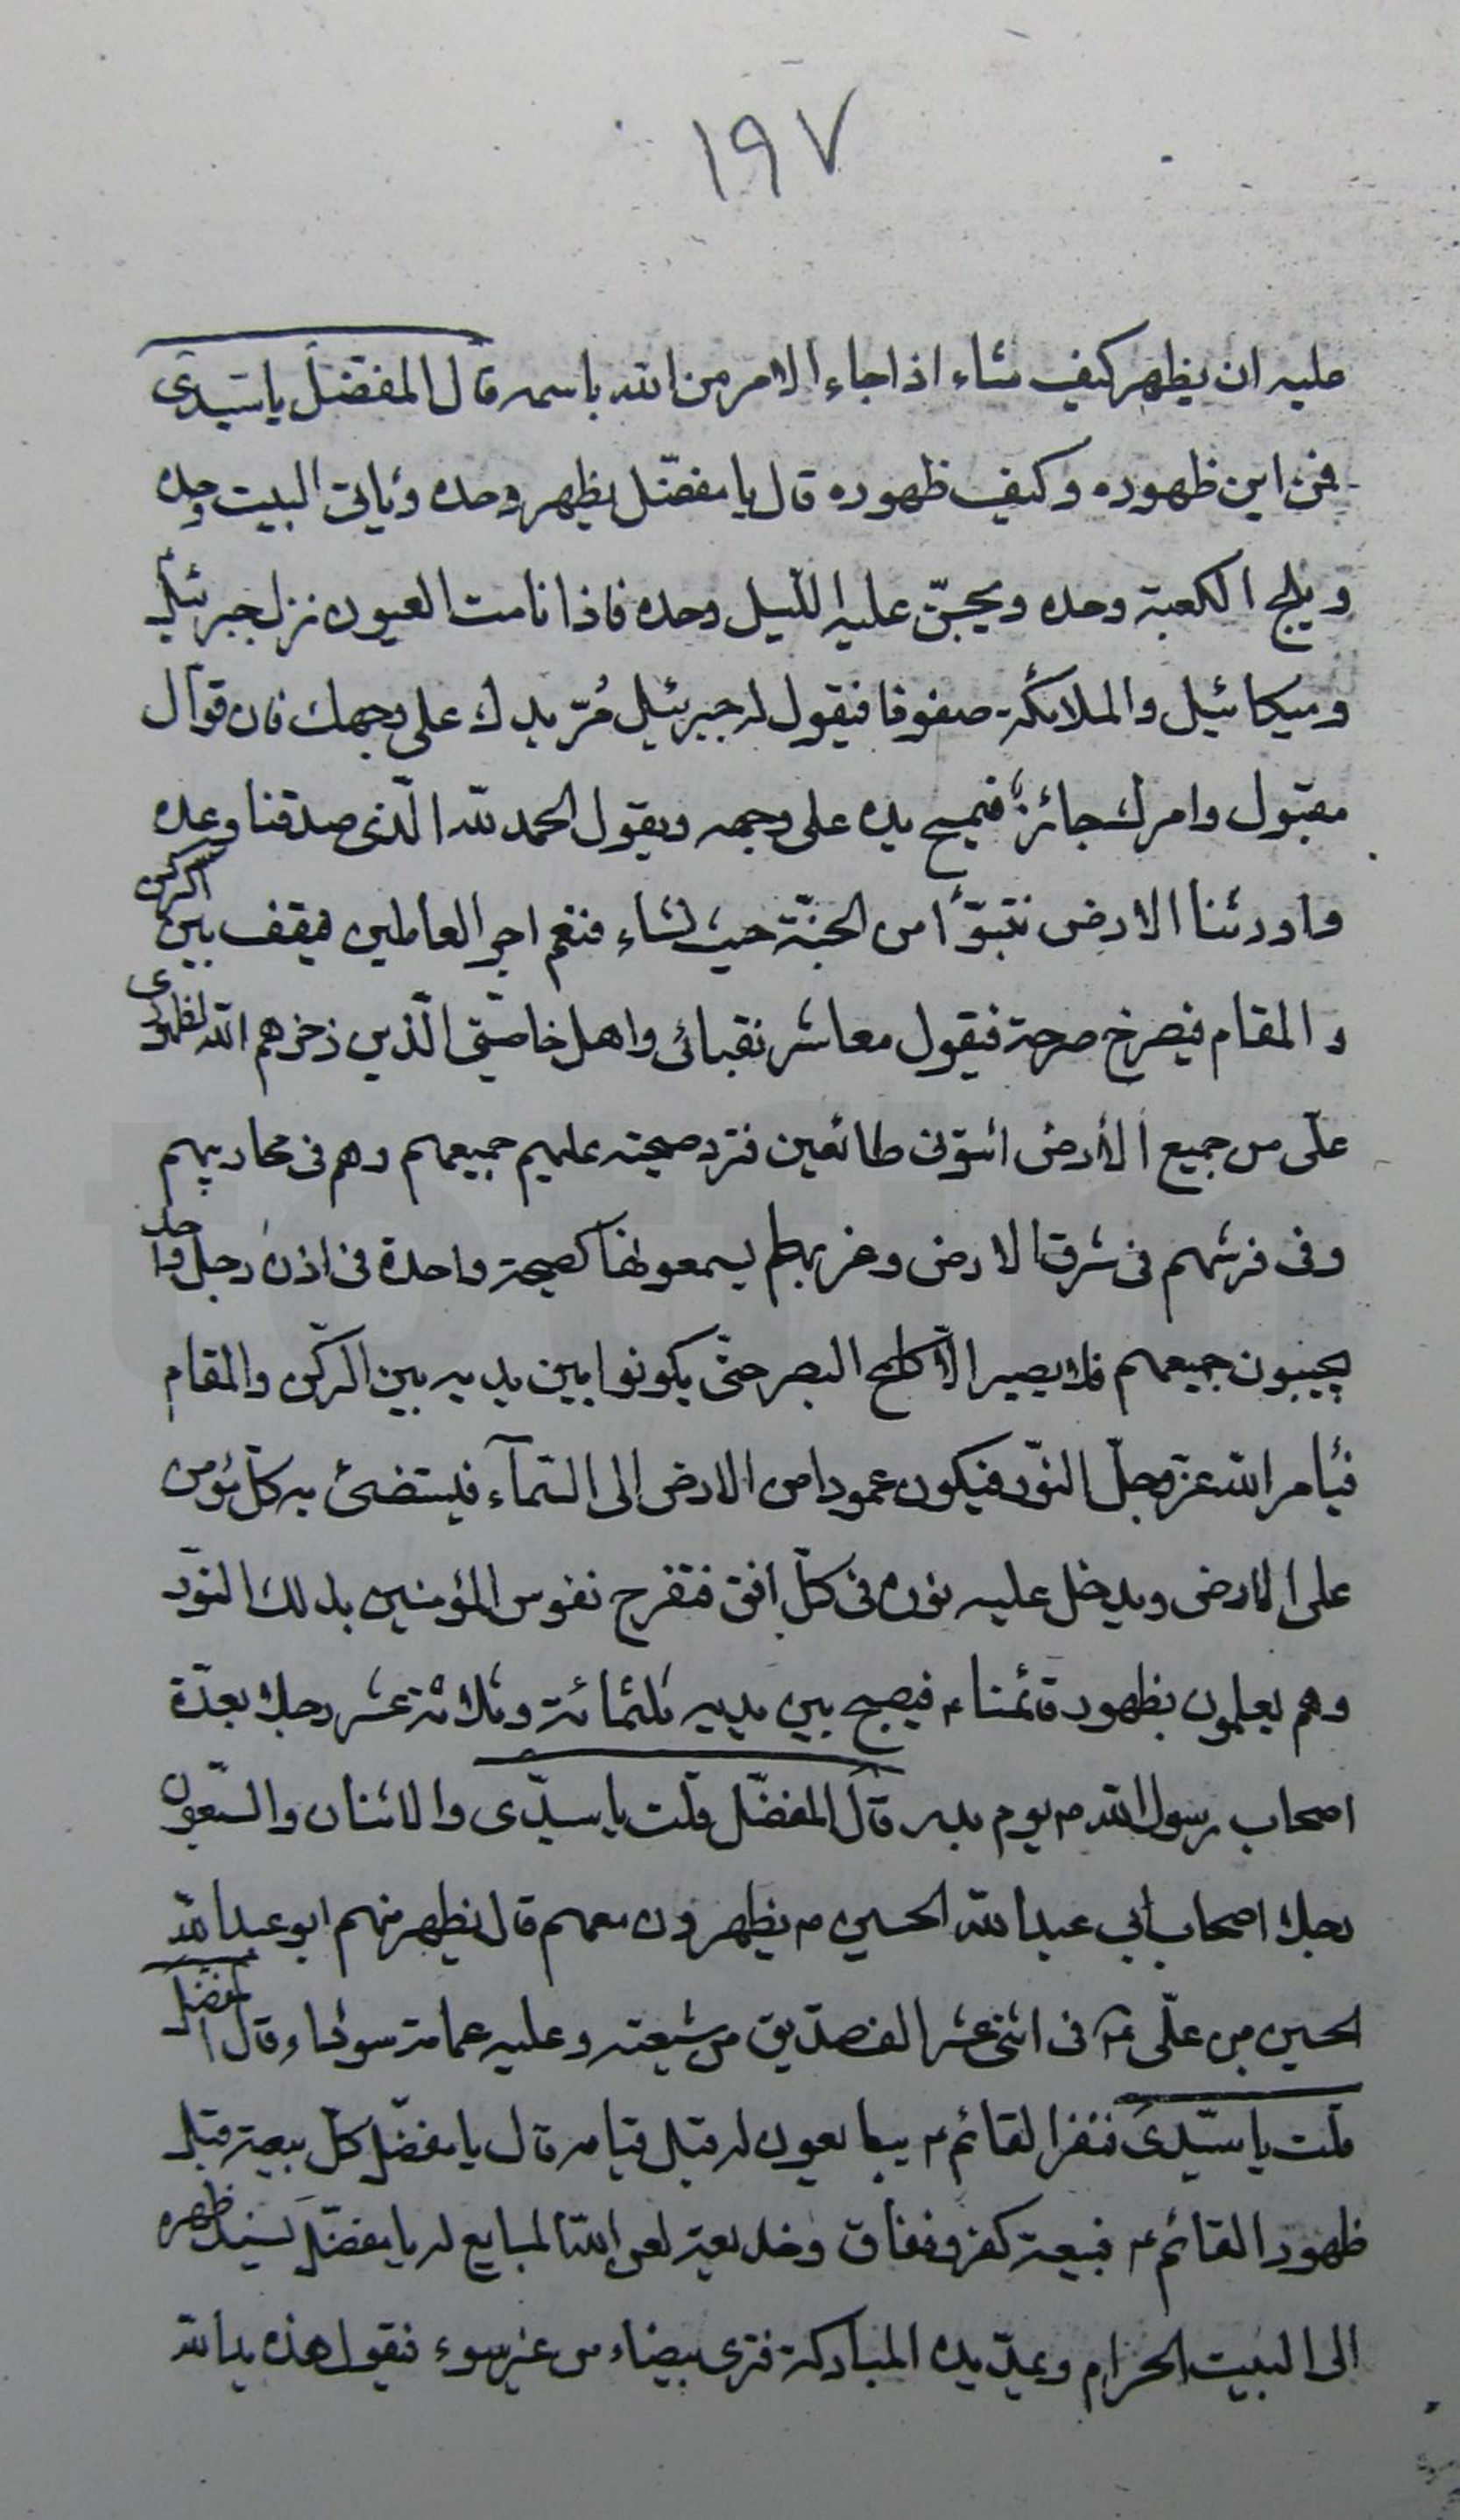 ١٩٧
عليه ان يظهر كيف شاء اذا جاء الامر من الله باسمه قال المفضّل يا سيّدى
فمن اين ظهوره وكيف ظهوره قال يا مفضّل يظهر وحده ويأتى البيت وحده
ويلج الكعبة وحده ويجنّ عليه اللّيل وحده فاذا نامت العيون نزل جبرئيل
وميكائيل والملائكة صفوفا فيقول له جبرئيل مُرّ يدك على وجهك فان قولك
مقبول وامرك جائز فيمسح يده على وجهه ويقول الحمد لله الّذى صدقنا وعده
واورثنا الارض نتبوّأ من الجنّة حيث نشاء فنعم اجر العاملين فيقف بين الركن
والمقام فيصرخ صرخة فيقول معاشر نقبائى واهل خاصّتى الّذين ذخرهم الله لظهورى
على من جميع الأرض ائتونى طائعين فترد صيحته عليهم جميعهم وهم فى محاريبهم
وفى فرشهم فى شرق الارض وغربها يسمعونها كصيحة واحدة فى اذن رجل واحد
يجيبون جميعهم فلا يصير الّا كلمح البصر حتّى يكونوا بين يديه بين الركن والمقام
فيأمر الله عزّ وجلّ النّور فيكون عمودا من الارض الى السّمآء فيستضئ به كلّ مؤمن
على الارض ويدخل عليه نور فى كلّ افق فتفرح نفوس المؤمنين بذلك النّور
وهم يعلمون بظهور قائمنا ع فيصبح بين يديه ثلثمائة وثلاثة عشر رجلا بعدّة
اصحاب رسول الله ص يوم بدر قال المفضّل قلت يا سيّدى والاثنان والسّبعون
رجلا اصحاب ابى عبد الله الحسين ع يظهرون معهم قال يظهر منهم ابو عبد الله
الحسين بن علّى ع فى اثنى عشر الف صدّيق من شيعته وعليه عمامة سوداء وقال المفضل
قلت يا سيّدى فنفر القائم ع يبايعون له قبل قيامه قال يا مفضّل كلّ بيعة قبل
ظهور القائم ع فبيعة كفر ونفاق وخديعة لعن الله المبايع له يا مفضّل يسند ظهره
الى البيت الحرام ويمدّ يده المباركة فترى بيضاء من غير سوء فيقول هذه يد الله